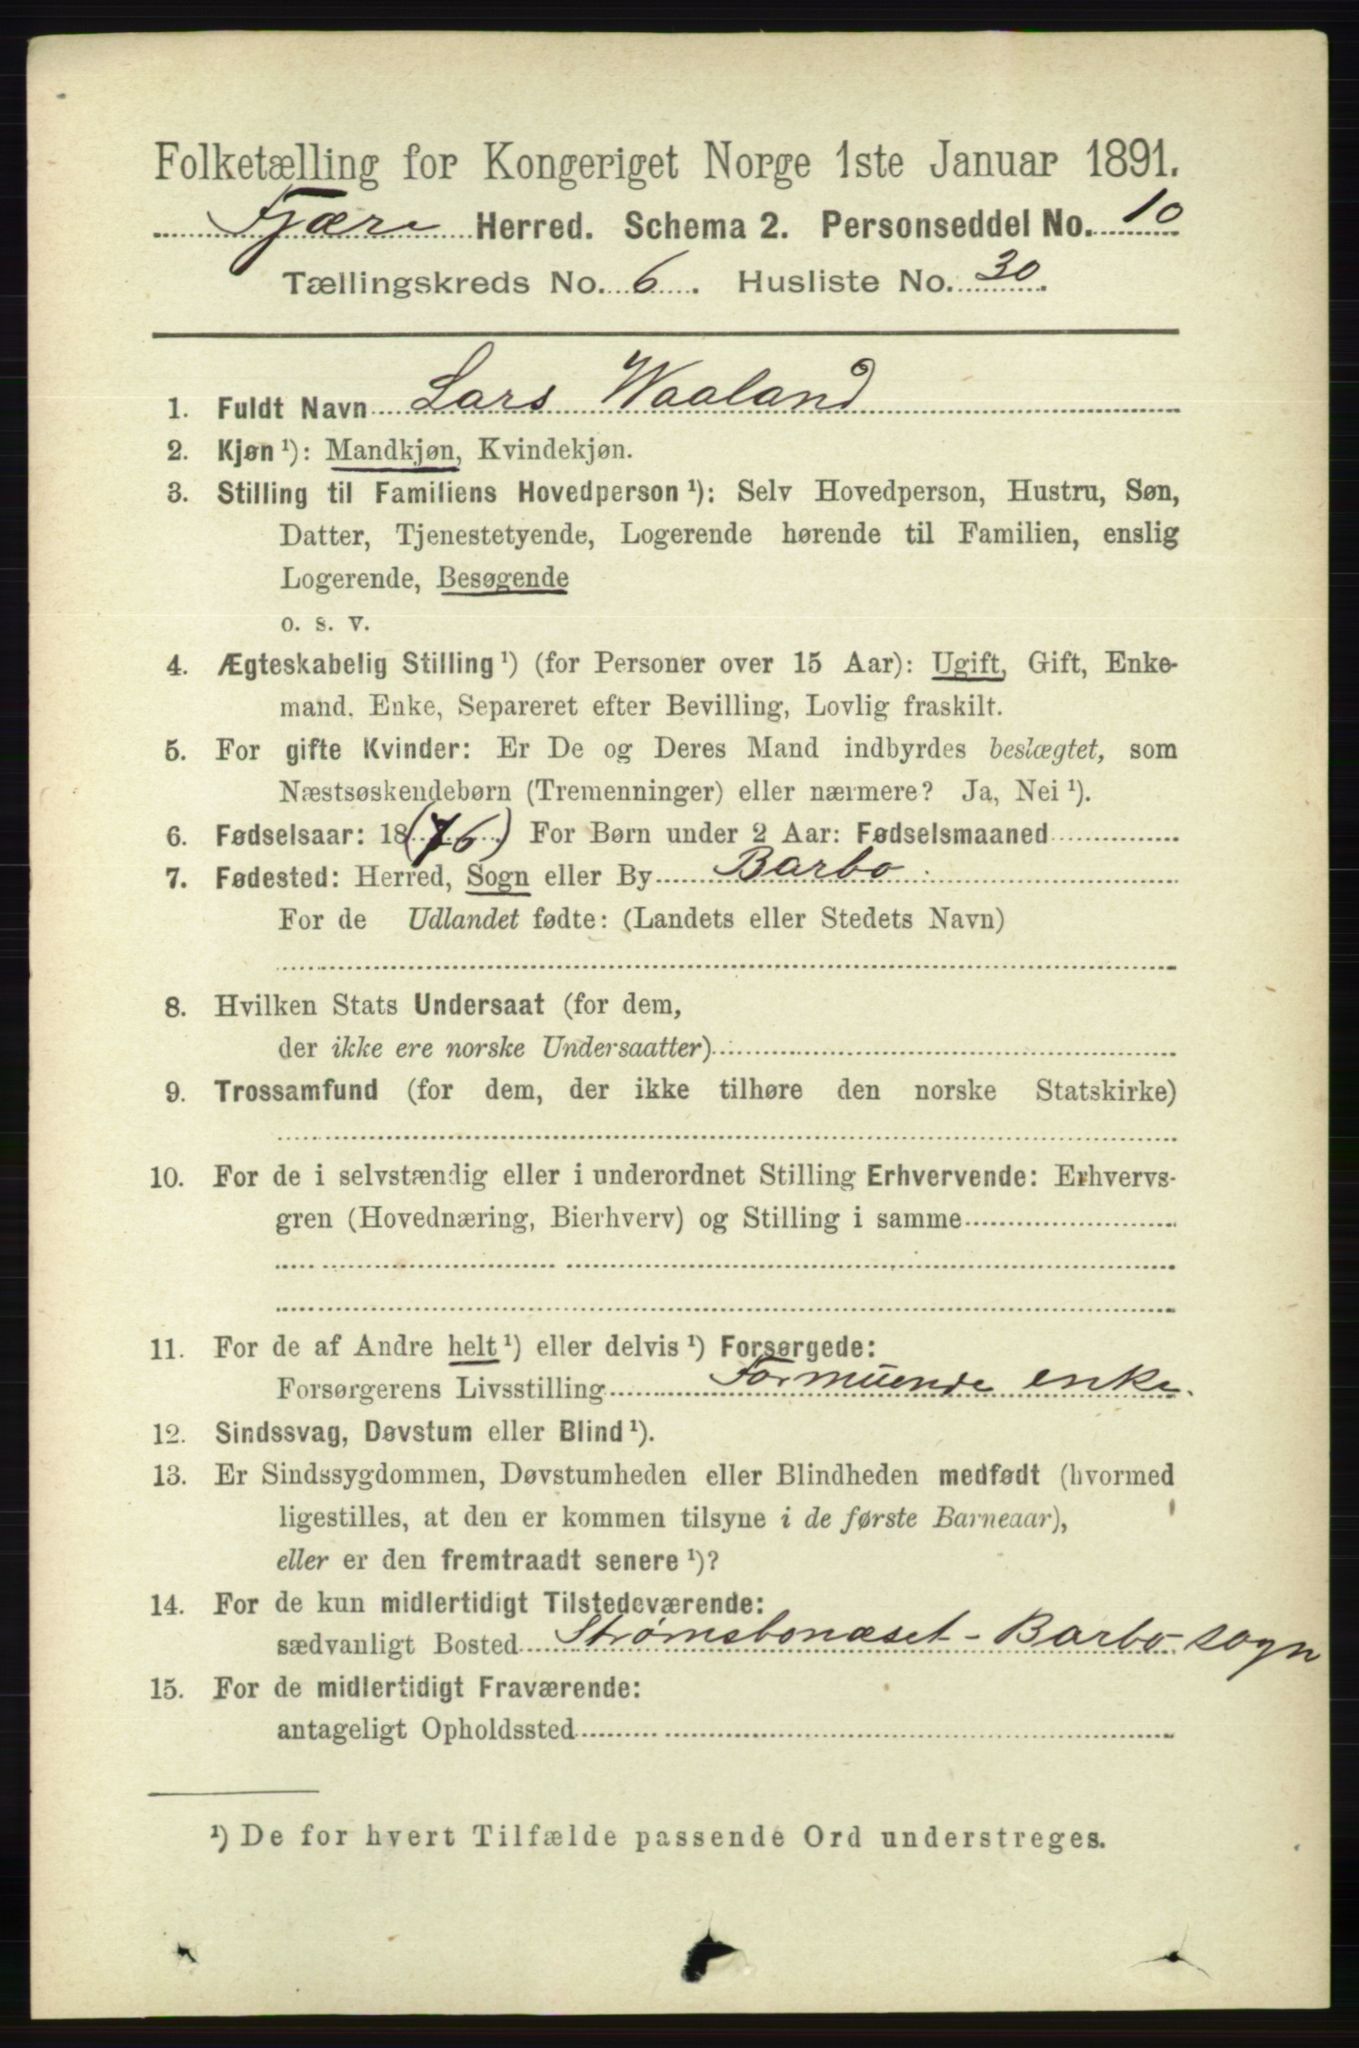 Folketælling for Kongeriget Norge 1ste Januar 1891.
Fjære Herred. Schema 2. Personseddel No. 10
Tællingskreds No. 6. Husliste No. 30.
1. Fuldt Navn Lars Waaland
2. Kjøn ¹): Mandkjøn, Kvindekjøn.
3. Stilling til Familiens Hovedperson ¹): Selv Hovedperson, Hustru, Søn,
Datter, Tjenestetyende, Logerende hørende til Familien, enslig
Logerende, Besøgende
o. s. v.
4. Ægteskabelig Stilling ¹) (for Personer over 15 Aar): Ugift, Gift, Enke-
mand, Enke, Separeret efter Bevilling, Lovlig fraskilt.
5. For gifte Kvinder: Er De og Deres Mand indbyrdes beslægtet, som
Næstsøskendebørn (Tremenninger) eller nærmere? Ja, Nei ¹).
6. Fødselsaar: 18(76) For Børn under 2 Aar: Fødselsmaaned
7. Fødested: Herred, Sogn eller By Barbo
For de Udlandet fødte: (Landets eller Stedets Navn)
8. Hvilken Stats Undersaat (for dem,
der ikke ere norske Undersaatter)
9. Trossamfund (for dem, der ikke tilhøre den norske Statskirke)
10. For de i selvstændig eller i underordnet Stilling Erhvervende: Erhvervs-
gren (Hovednæring, Bierhverv) og Stilling i samme
11. For de af Andre helt ¹) eller delvis ¹) Forsørgede:
Forsørgerens Livsstilling Formuende enke.
12. Sindssvag, Døvstum eller Blind ¹).
13. Er Sindssygdommen, Døvstumheden eller Blindheden medfødt (hvormed
ligestilles, at den er kommen tilsyne i de første Barneaar),
eller er den fremtraadt senere ¹)?
14. For de kun midlertidigt Tilstedeværende:
sædvanligt Bosted Strømsbonæset - Barbo sogn
15. For de midlertidigt Fraværende:
antageligt Opholdssted
¹) De for hvert Tilfælde passende Ord understreges.